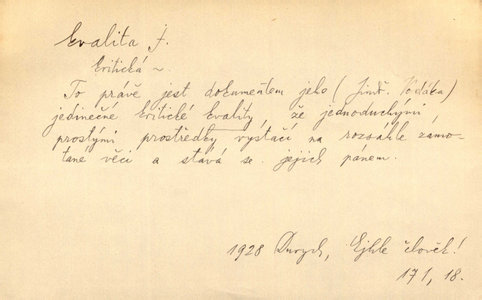 kvalita f.
kritická ~
To právě jest dokumentem jeho (Jindř. Vodáka)
jedinečné kritické kvality, že jednoduchými,
prostými prostředky vystačí na rozsáhle zamo-
tané věci a stává se jejich pánem.
1928 Durych, Ejhle člověk!
171, 18.